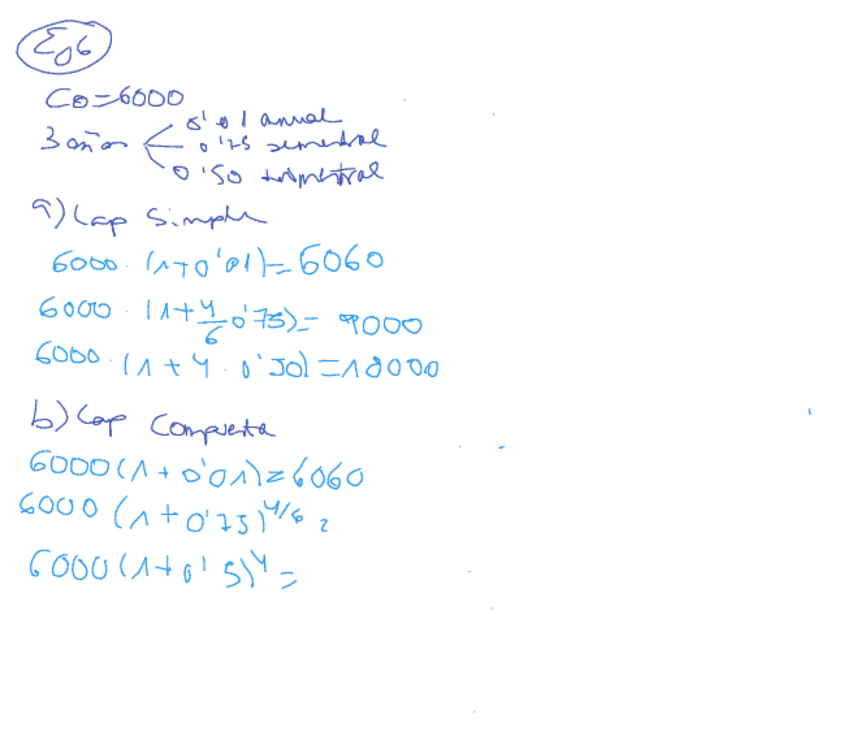 Ej 6
Co=6000
3 años
0'01 anual
0'75 semestral
0'50 trimestral
a) Cap Simple
6000 · (1+0'01)=6060
6000 · (1+4/6 0'75)= 9000
6000 · (1+4 · 0'50)=18000
b) Cap Compuesta
6000(1+0'01)=6060
6000 (1+0'75)^4/6 =
6000(1+0'5)^4 =